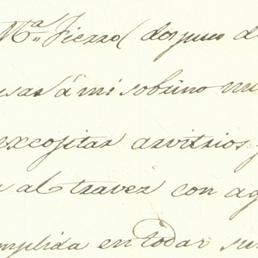 M.ª Fierro( despues d
usar á mi sobrino
excojitar arvitrios
al travez con ag
mplida en todas su